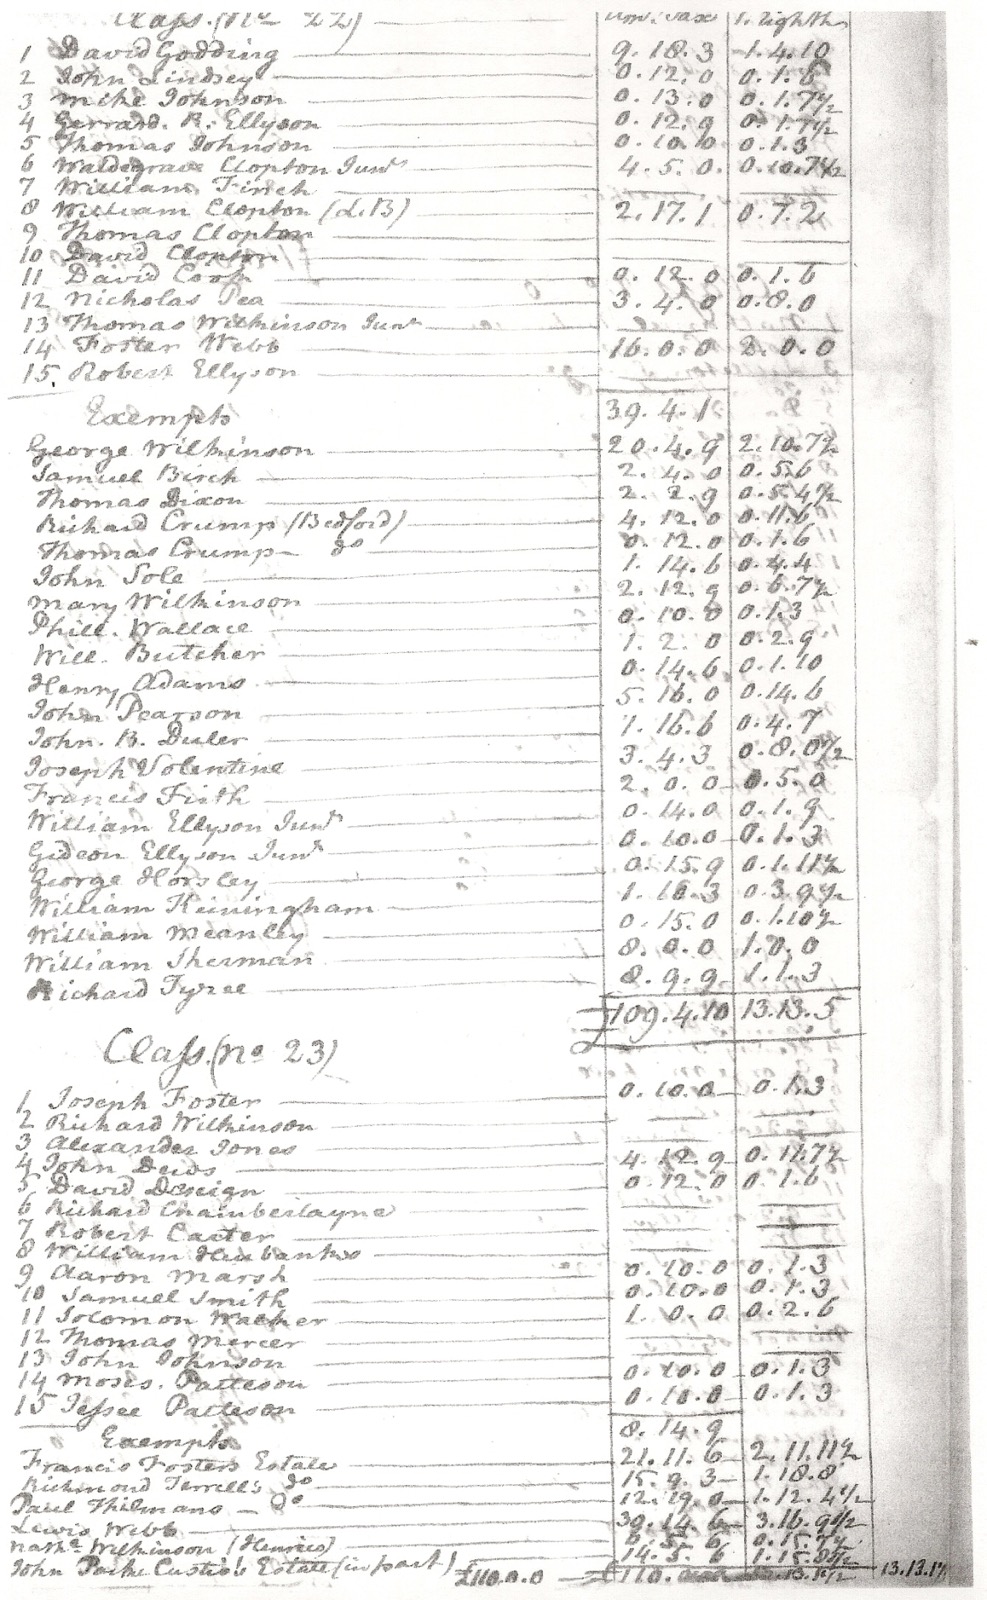 Class. (No 22) Am: Tax 1. Eighth
1 David Godding 9. 18. 3 1. 4. 10
2 John Lindsey 0. 12. 0 0. 1. 6
3 Mike Johnson 0. 13. 0 0. 1. 7½
4 Gerrard. R. Ellyson 0. 12. 9 0. 1. 7½
5 Thomas Johnson 0. 10. 0 0. 1. 3
6 Waldegrave Clopton Junr 4. 5. 0. 0. 10. 7½
7 William Finch
8 William Clopton (L.B) 2. 17. 1 0. 7. 2
9 Thomas Clopton
10 David Clopton
11 David Cook 0. 12. 0 0. 1. 6
12 Nicholas Pea 3. 4. 0 0. 8. 0
13 Thomas Wilkinson Junr
14 Foster Webb 16. 0. 0 2. 0. 0
15. Robert Ellyson
Exempts 39. 4. 1
George Wilkinson 20. 4. 9 2. 10. 7½
Samuel Birch 2. 4. 0 0. 5. 6
Thomas Dixon 2. 2. 9 0. 5. 4½
Richard Crump (Bedford) 4. 12. 0 0. 11. 6
Thomas Crump do 0. 12. 0 0. 1. 6
John Sole 1. 14. 6 0. 4. 4
Mary Wilkinson 2. 12. 9 0. 6. 7½
Phill. Wallace 0. 10. 0 0. 1. 3
Will. Butcher 1. 2. 0 0. 2. 9
Henry Adams 0. 14. 6 0. 1. 10
John Pearson 5. 16. 0 0. 14. 6
John. B. Duler 1. 16. 6 0. 4. 7
Joseph Volentine 3. 4. 3 0. 8. 0½
Francis Firth 2. 0. 0 0. 5. 0
William Ellyson Junr 0. 14. 0 0. 1. 9
Gideon Ellyson Junr 0. 10. 0 0. 1. 3
George Horsley 0. 15. 9 0. 1. 11½
William Keiningham 1. 10. 3 0. 3. 9½
William Meanley 0. 15. 0 0. 1. 10½
William Sherman 8. 0. 0 1. 0. 0
Richard Tyree 8. 9. 9 1. 1. 3
£109. 4. 10 13. 13. 5
Class. (no 23)
1 Joseph Foster 0. 10. 0 0. 1. 3
2 Richard Wilkinson
3 Alexander Jones
4 John Dews 4. 12. 9 0. 11. 7½
5 David Design 0. 12. 0 0. 1. 6
6 Richard Chamberlayne
7 Robert Carter
8 William Hewbanks
9 Aaron Marsh 0. 10. 0 0. 1. 3
10 Samuel Smith 0. 10. 0 0. 1. 3
11 Solomon Walker 1. 0. 0 0. 2. 6
12 Thomas Mercer
13 John Johnson
14 Moses. Patteson 0. 10. 0 0. 1. 3
15 Jessee Patteson 0. 10. 0 0. 1. 3
8. 14. 9
Exempts
Francis Fosters Estate 21. 11. 6 2. 11. 11½
Richmond Terrell's do 15. 9. 3 1. 18. 8
Paul Thilmans do 12. 19. 0 1. 12. 4½
Lewis Webb 30. 14. 6 3. 16. 9½
Nathl Wilkinson (Henrico)
John Parke Custis's Estate (in part) £110.0.0 14. 5. 6
£110. 13.13.1½